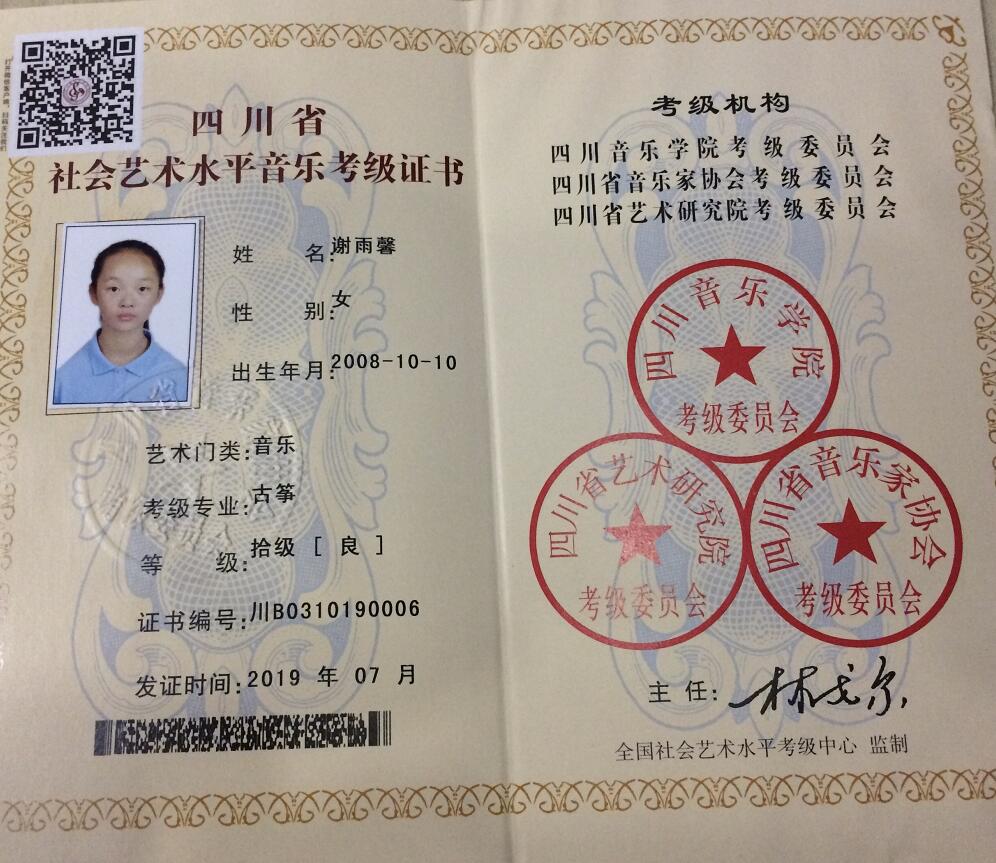 四川省
社会艺术水平音乐考级证书
姓 名:谢雨馨
性 别:女
出生年月:2008-10-10
艺术门类:音乐
考级专业:古筝
等 级:拾级 [ 良 ]
证书编号:川B0310190006
发证时间:2019 年 07 月
考级机构
四川音乐学院考级委员会
四川省音乐家协会考级委员会
四川省艺术研究院考级委员会
四川音乐学院
考级委员会
四川省艺术研究院
考级委员会
四川省音乐家协会
考级委员会
主任:
全国社会艺术水平考级中心 监制